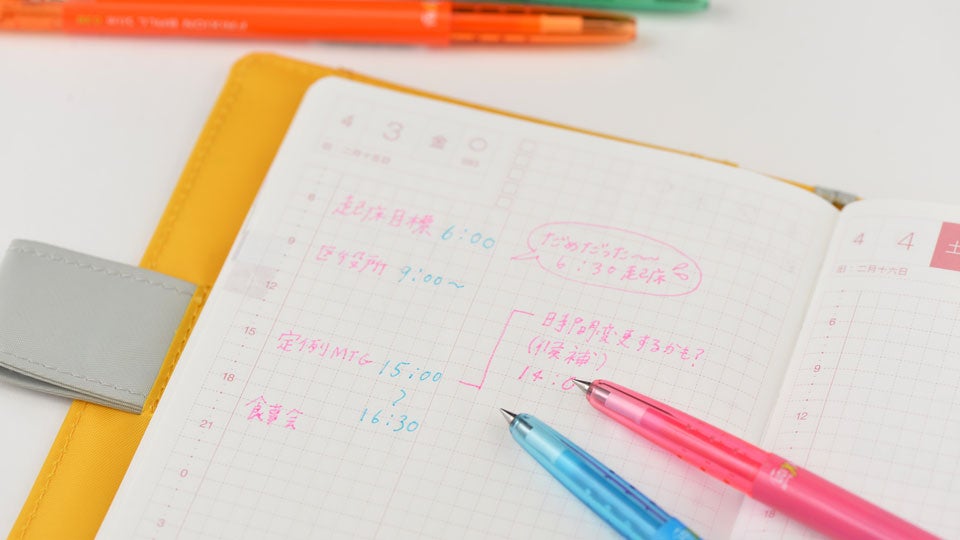 4 3 金
旧:二月十五日
6
9
12
15
18
21
0
3
起床目標 6:00
だめだった〜
6:30起床
区役所 9:00〜
定例MTG 15:00
〜
16:30
時間変更するかも?
(候補)
14:0
食事会
4 4 土
旧:二月十六日
6
9
12
18